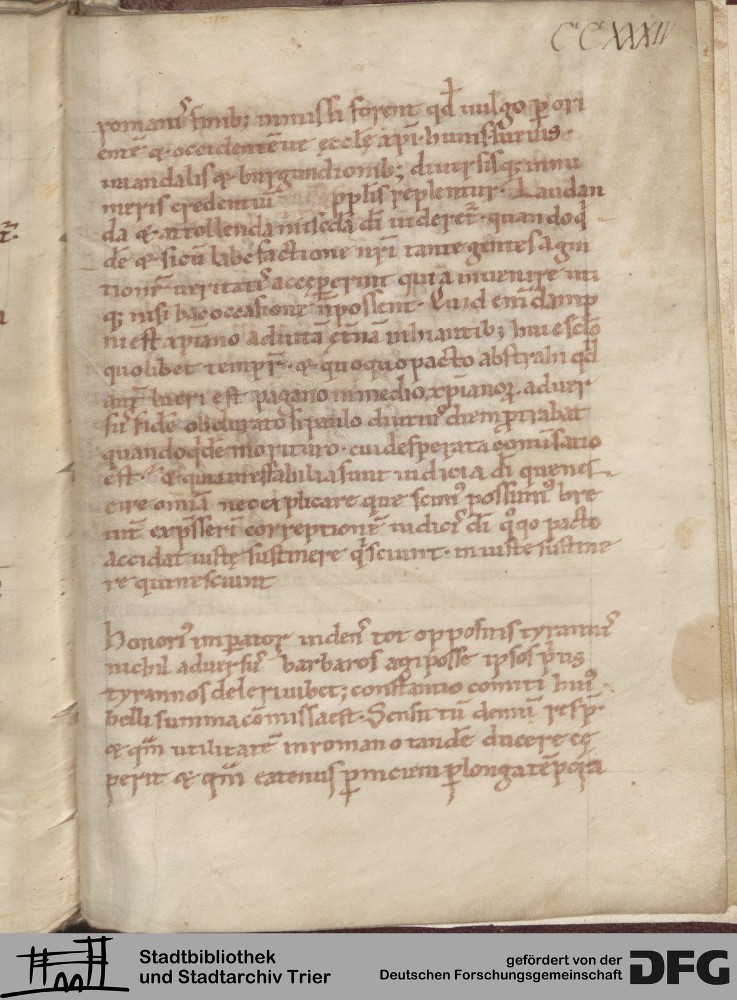 CCXXXIII
romanis finib; inmissi forent qđ uulgo p ori
entē & occidentē ut ęcclę xpi hunis sueuis
uuandalis & burgundionib; diuersisq; innu
meris credentiū pplis replentur. Laudan
da & attollenda misc̄dā dī uideret̄. quandoq̄
dē & si cū labefactione nr̄i tantę gentes agni
tionē ueritatis acceperint quā inuenire uti
q; nisi hac occasione n̄ possent. Quid enī dāmp
ni est xpiano ad uitā etnā inhiantib; huic sclō
quolibet tempr̄. & quoquo pacto abstrahi qđ
aut̄ lucri est pagano in medio xpianoȝ aduer
sus fidē obdurato si paulo diutius diem ptrahat
quandoq̄dē morituro. cui desperata conuersatio
est. & quia ineffabilia sunt iudicia dī quę nec
scire omia nec explicare quę scimus possumus bre
uit̄ exp̄sseri correptionē iudicis dī q̄ quo pacto
accidat iustę sustinere q̄ sciunt. iniuste sustine
re qui nesciunt
honorius imperator uidens tot oppositis tyrannis
nichil aduersus barbaros agi posse ipsos prius
tyrannos deleri iubet; constantio comiti huius
belli summa cōmissa est. Sensit tū demū resp̄
& quā utilitatē in romano tandē duce rece
perit & quā eatenus pniciem p longa tēpora
Stadtbibliothek
und Stadtarchiv Trier
gefördert von der
Deutschen Forschungsgemeinschaft
DFG